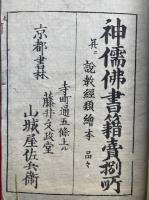 神儒佛書籍賣捌所
并ニ說教經類繪本品々
寺町通五條上ル
京都書林
藤井文政堂
山城屋佐兵衛